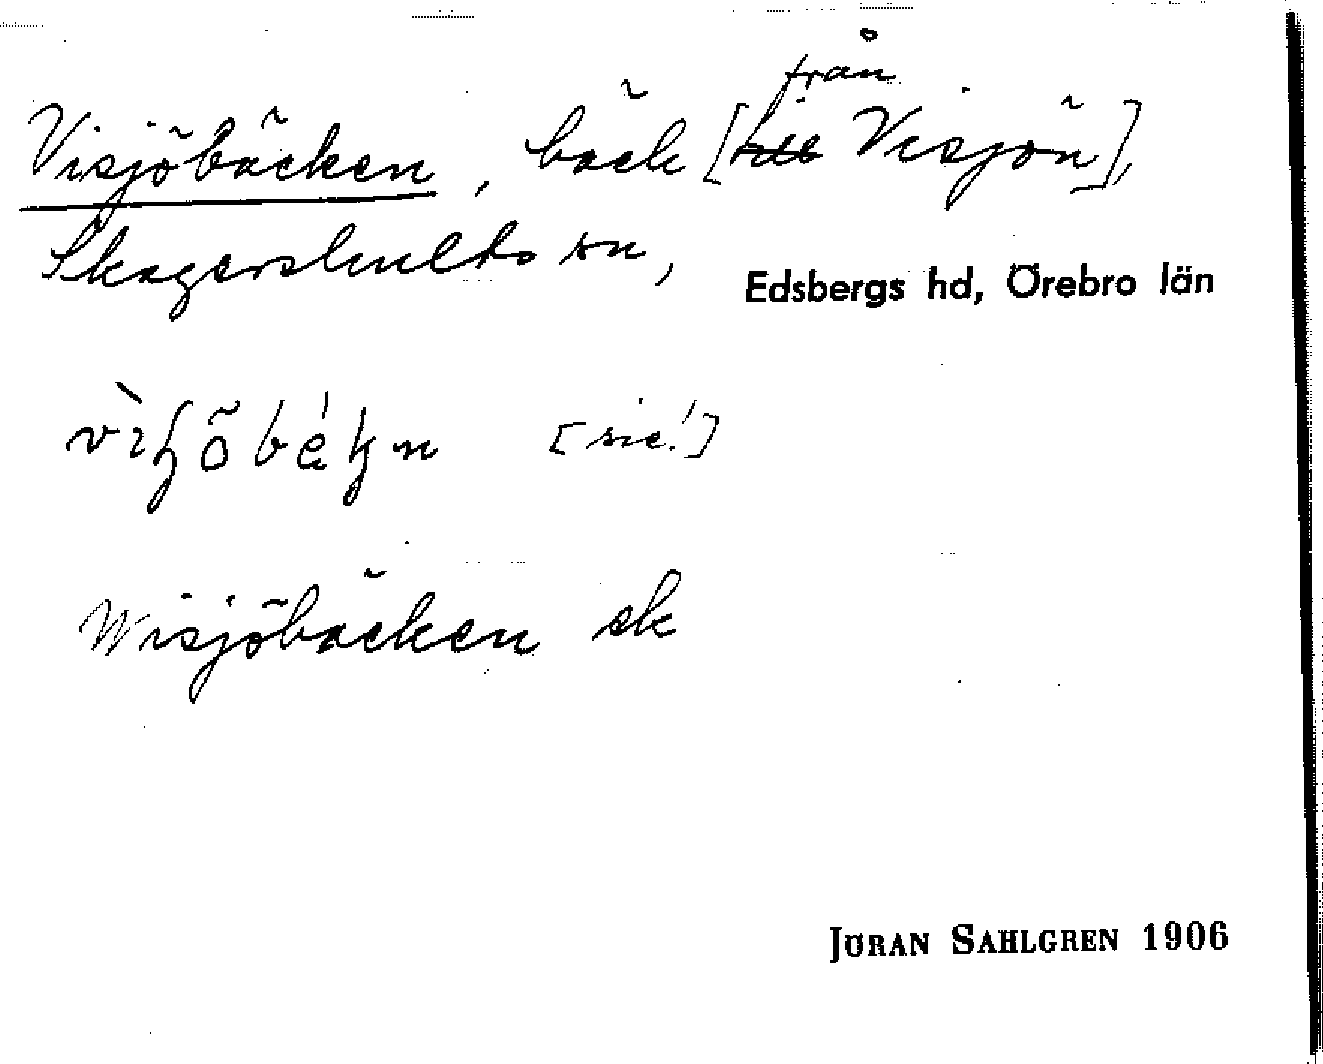 från
Visjöbäcken, bäck [till Visjön],
Skagershults sn, Edsbergs hd, Örebro län
[sic!]
Wisjöbäcken sk
JÖRAN SAHLGREN 1906